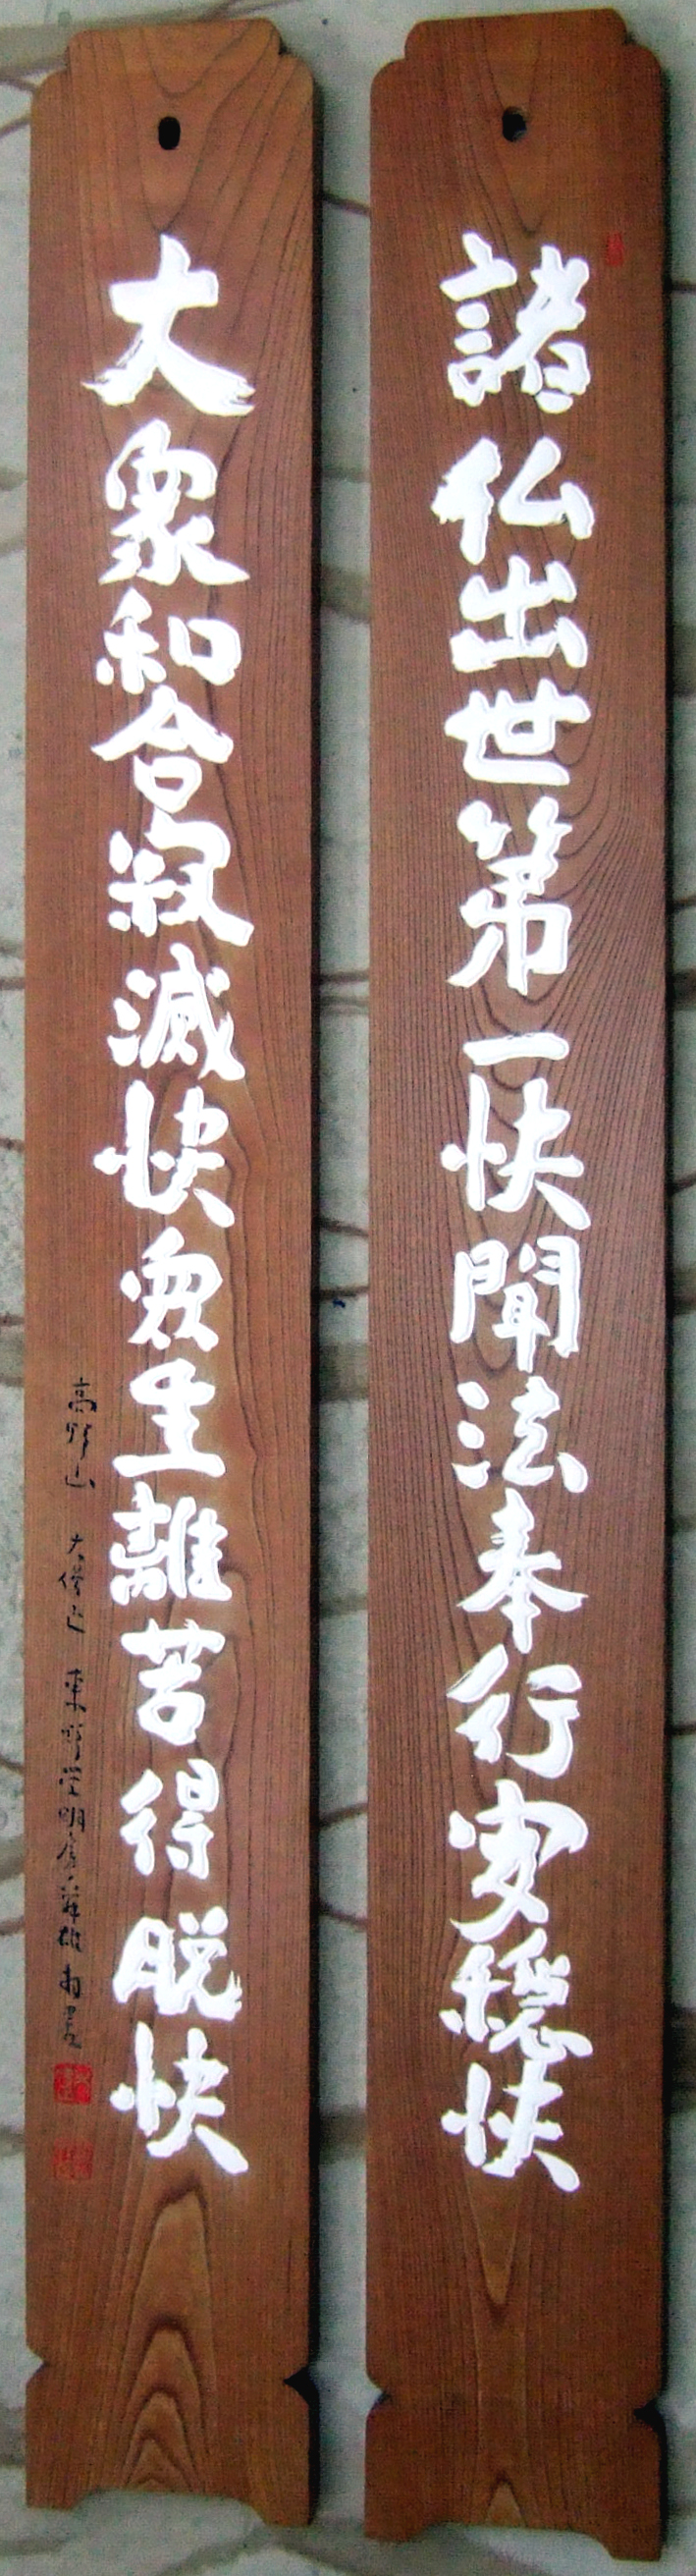 諸仏出世第一快聞法奉行安穏快
大衆和合寂滅快衆生離苦得脱快
高野山 大僧正 東野学明